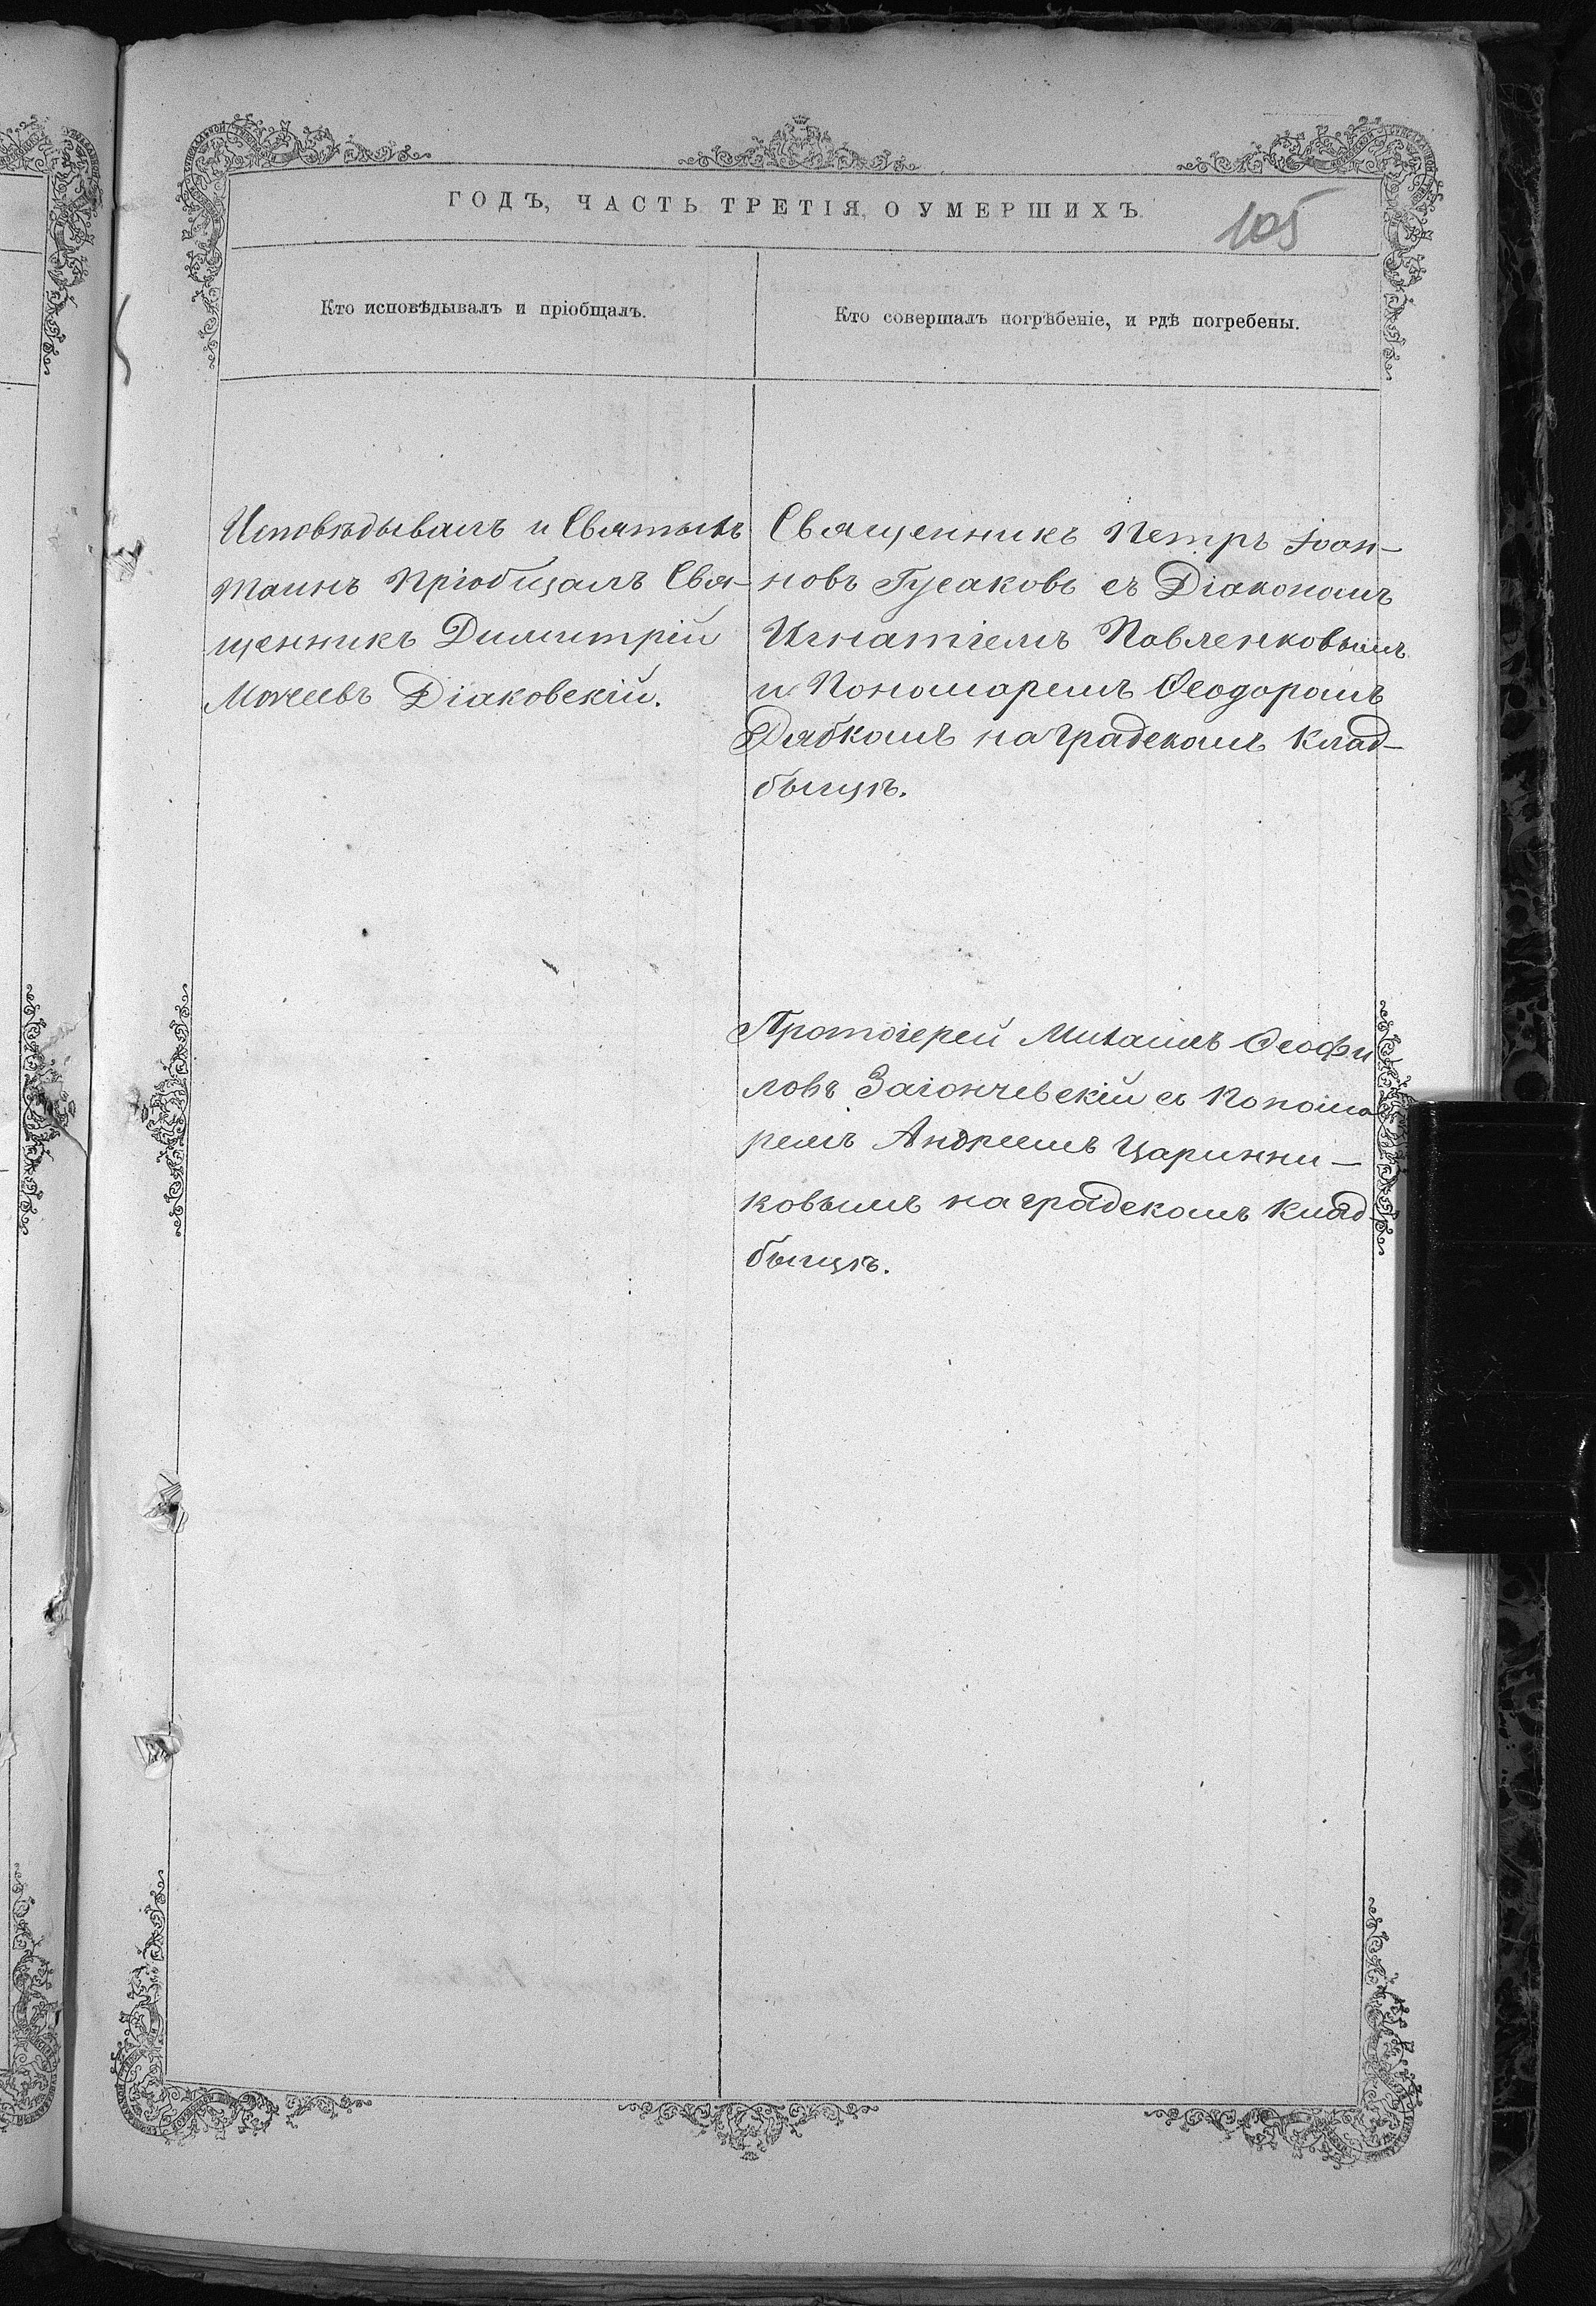 ГОДЪ, ЧАСТЬ ТРЕТІЯ, О УМЕРШИХЪ.
105
Кто исповѣдывалъ и пріобщалъ.
Кто совершалъ погрѣбеніе, и гдѣ погребены.
Исповѣдывалъ и Святыхъ
Таинъ Пріобщалъ Свя-
щенникъ Димитрій
Моѵсеевъ Діаковскій.
Священникъ Петръ Іоан-
новъ Гусаковъ съ Діакономъ
Игнатіемъ Павленковымъ
и Пономаремъ Ѳеодоромъ
Дябкомъ на градскомъ клад-
бищѣ.
Протоіерей Михаилъ Ѳеофи
ловъ Заіончевскій съ Понома
ремъ Андреемъ Царинни-
ковымъ на градскомъ клад
бищѣ.